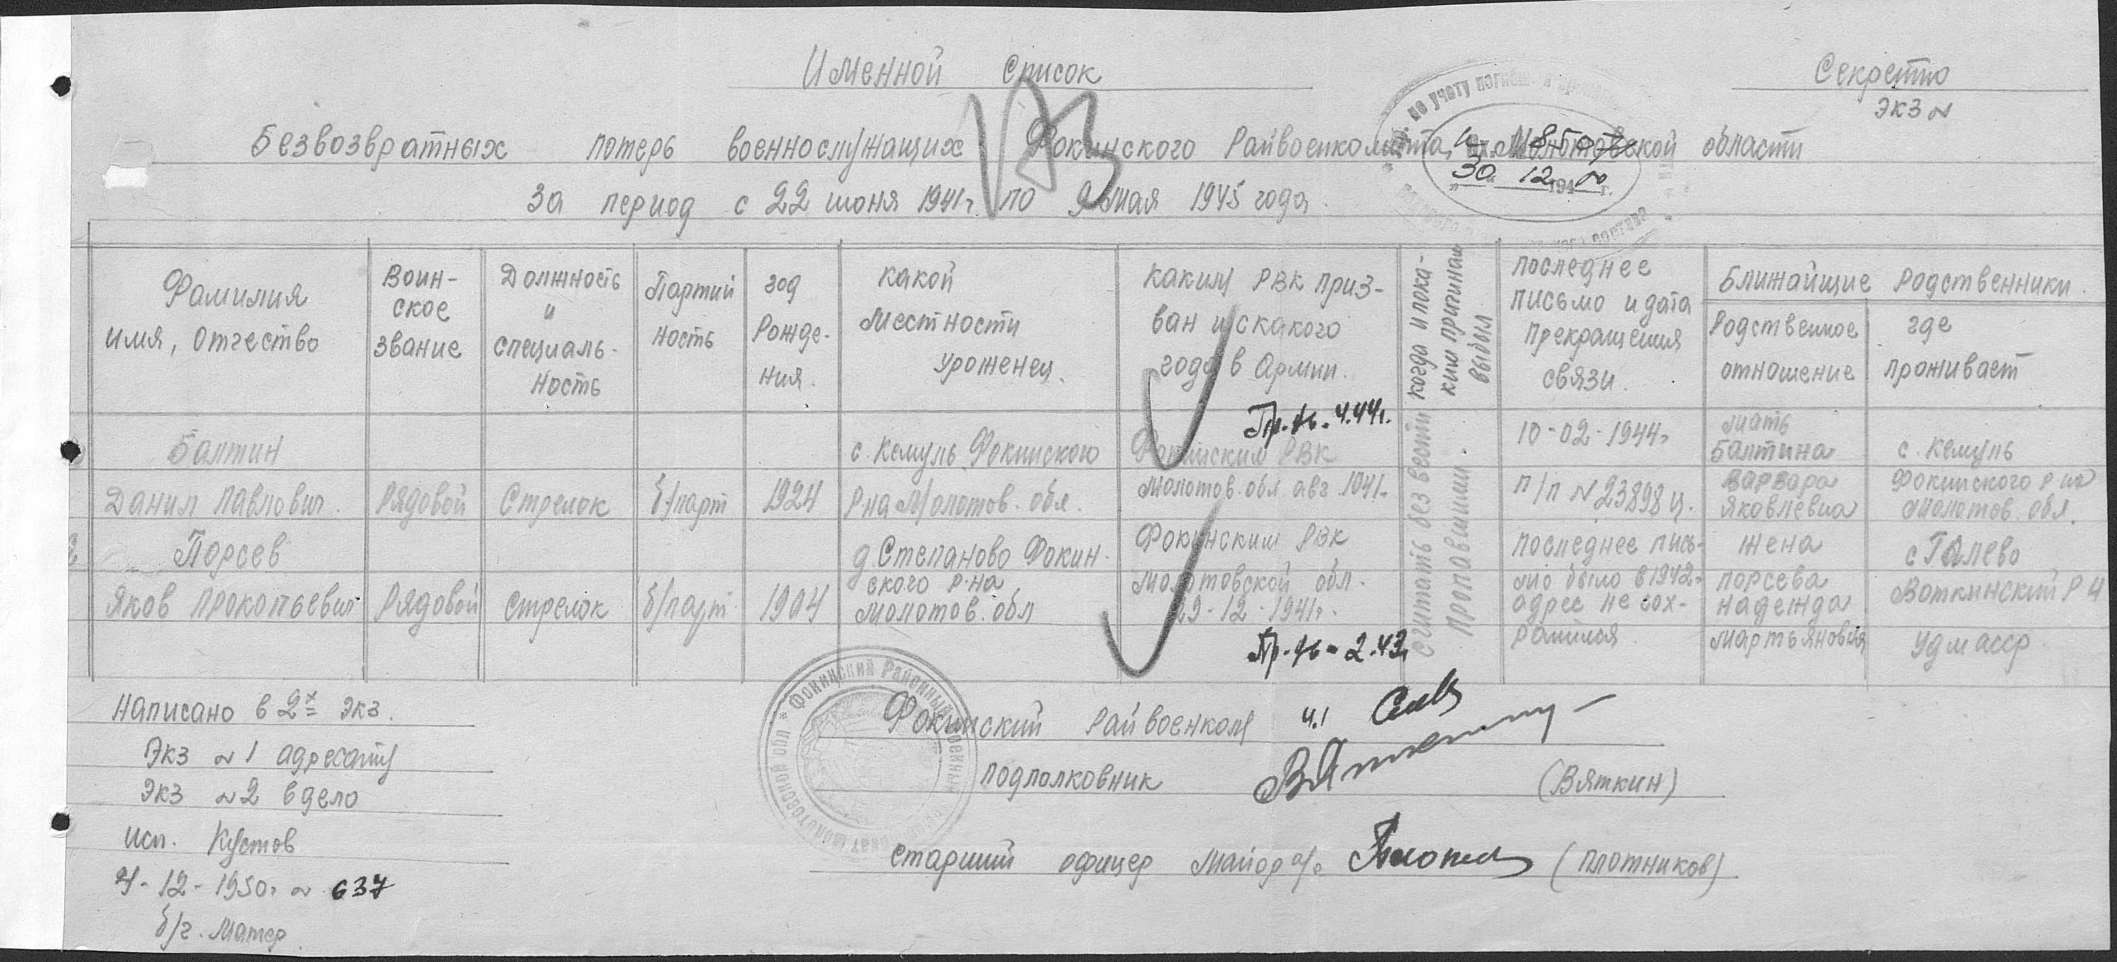 Именной список
Секретно
экз №
Безвозвратных потерь военнослужащих Фокинского Райвоенкомата, Молотовской области
за период с 22 июня 1941г. по 9 мая 1945 года
по учету
30 12 г.
Фамилия имя, отчество
Воин-
ское
звание
Должность
и
специаль-
ность
Партий
ность
год
Рожде-
ния.
какой
местности
уроженец.
каким РВК приз-
ван и с какого
года в Армии.
когда и по ка-
ким причинам
выбыл
последнее
письмо и дата
прекращения
связи.
Ближайшие Родственники.
Родственное
отношение
где
проживает
Балтин
Данил Павлович.
Рядовой
Стрелок
б/парт
1924
с. Кемуль Фокинского
Р на Молотов. обл.
Пр.-бв. 4.44г.
Фокинским РВК
Молотов. обл авг. 1941г.
Считать без вести
пропавшими.
10-02-1944г
п/п № 23898 ц.
мать
Балтина
Варвара
Яковлевна
с. Кемуль
Фокинского р на
Молотов. обл.
Порсев
Яков Прокопьевич
Рядовой
стрелок
б/парт
1904
д Степаново Фокин-
ского р-на
Молотов. обл
Фокинским РВК
Молотовской обл.
29-12-1941г.
Пр.-бв-2.43г
последнее пись-
мо было в 1942г
адрес не сох-
ранился.
жена
порсева
надежда
Мартьяновна
с Галево
Воткинский Р н
Удм асср.
Написано в 2х экз.
Экз №1 адресату
Экз №2 в дело
исп. Кустов
4-12-1950г № 637
б/ч. Матер
Фокинский Районный Военный
Молотовской обл
Фокинский Райвоенком
подполковник
(Вяткин)
старший офицер Майор а/с
(Плотников)